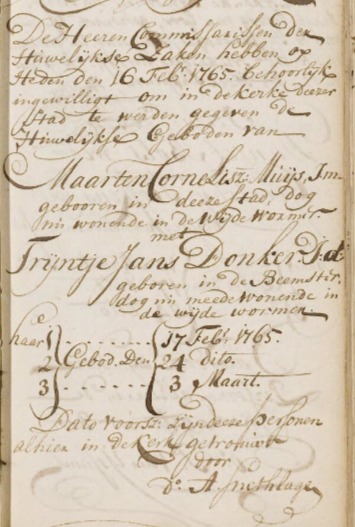 De Heeren Commissarissen der
Huwelijkse Zaken hebben op
Heden den 16 Feb: 1765. behoorlijk
ingewilligt om in de kerke deezer
Stad te werden gegeven de
Huwelijkse Geboden van
Maarten Cornelisz: Muijs, J:m
gebooren in deeze stad, dog
nu wonende in de Wijde Wormer.
met
Trijntje Jans Donker J:d:
geboren in de Beemster.
dog nu meede wonende in
de wijde wormer.
haar 1e ....... 17 Feb: 1765.
2 Gebod. Den 24 dito.
3 ....... 3 Maart.
Dato voorsz: zijn deeze personen
alhier in de Kerk getrouwt
door
Ds: A